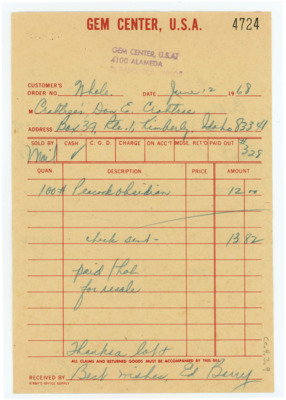 GEM CENTER, U.S.A. 4724
GEM CENTER, U.S.A.
4100 ALAMEDA
CUSTOMER'S
ORDER NO. Whole. DATE June 12 1968
M Crabtree's Don E. Crabtree
ADDRESS Box 39, Rte. 1, Kimberly, Idaho 83341
SOLD BY CASH C.O.D. CHARGE ON ACC'T MDSE. RET'D PAID OUT
Mail ✓ 328
QUAN. DESCRIPTION PRICE AMOUNT
100# Peacock obsidian 12 00
check sent - 13.82
paid
for resale
Thanks a lot
ALL CLAIMS AND RETURNED GOODS MUST BE ACCOMPANIED BY THIS BILL
RECEIVED BY Best wishes, Ed Berry